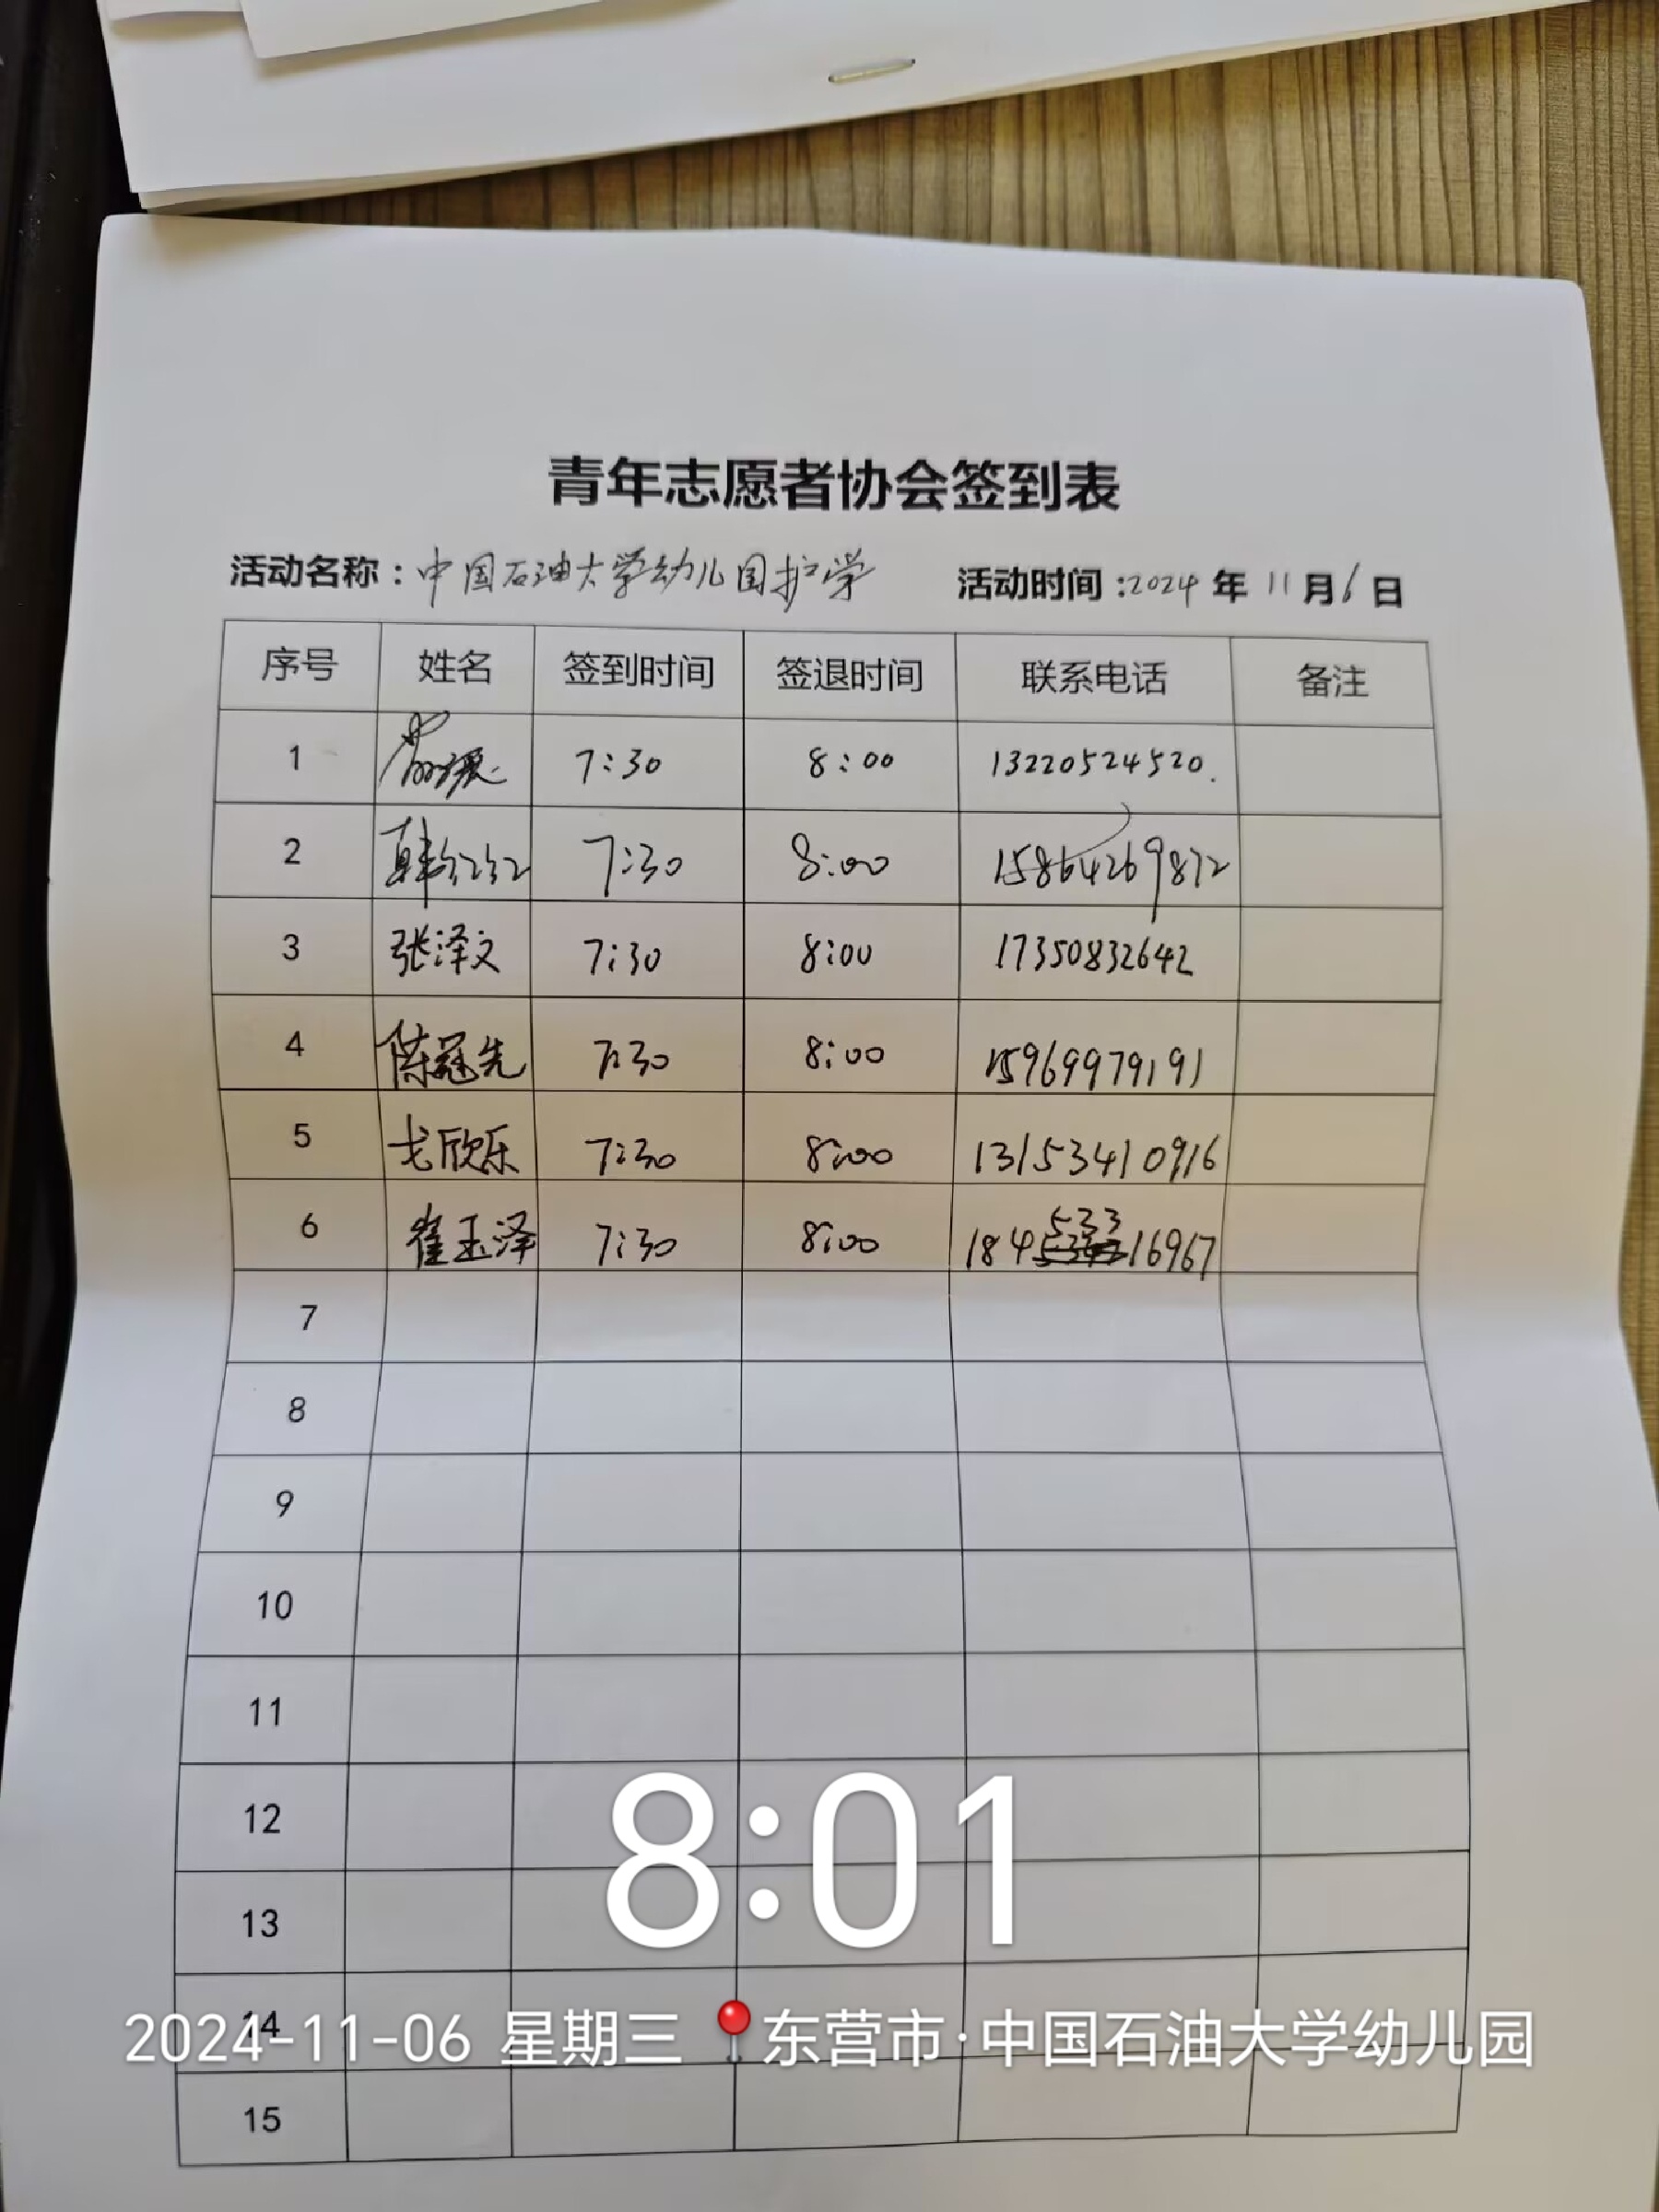 青年志愿者协会签到表
活动名称：中国石油大学幼儿园护学 活动时间：2024 年 11 月 6 日
序号 姓名 签到时间 签退时间 联系电话 备注
1 7:30 8:00 13220524520.
2 韩红红 7:30 8:00 15864269872
3 张泽文 7:30 8:00 17350832642
4 陈冠先 7:30 8:00 15969979191
5 戈欣乐 7:30 8:00 13153410916
6 崔玉泽 7:30 8:00 18453316967
7
8
9
10
11
12
8:01
13
14
2024-11-06 星期三 东营市·中国石油大学幼儿园
15